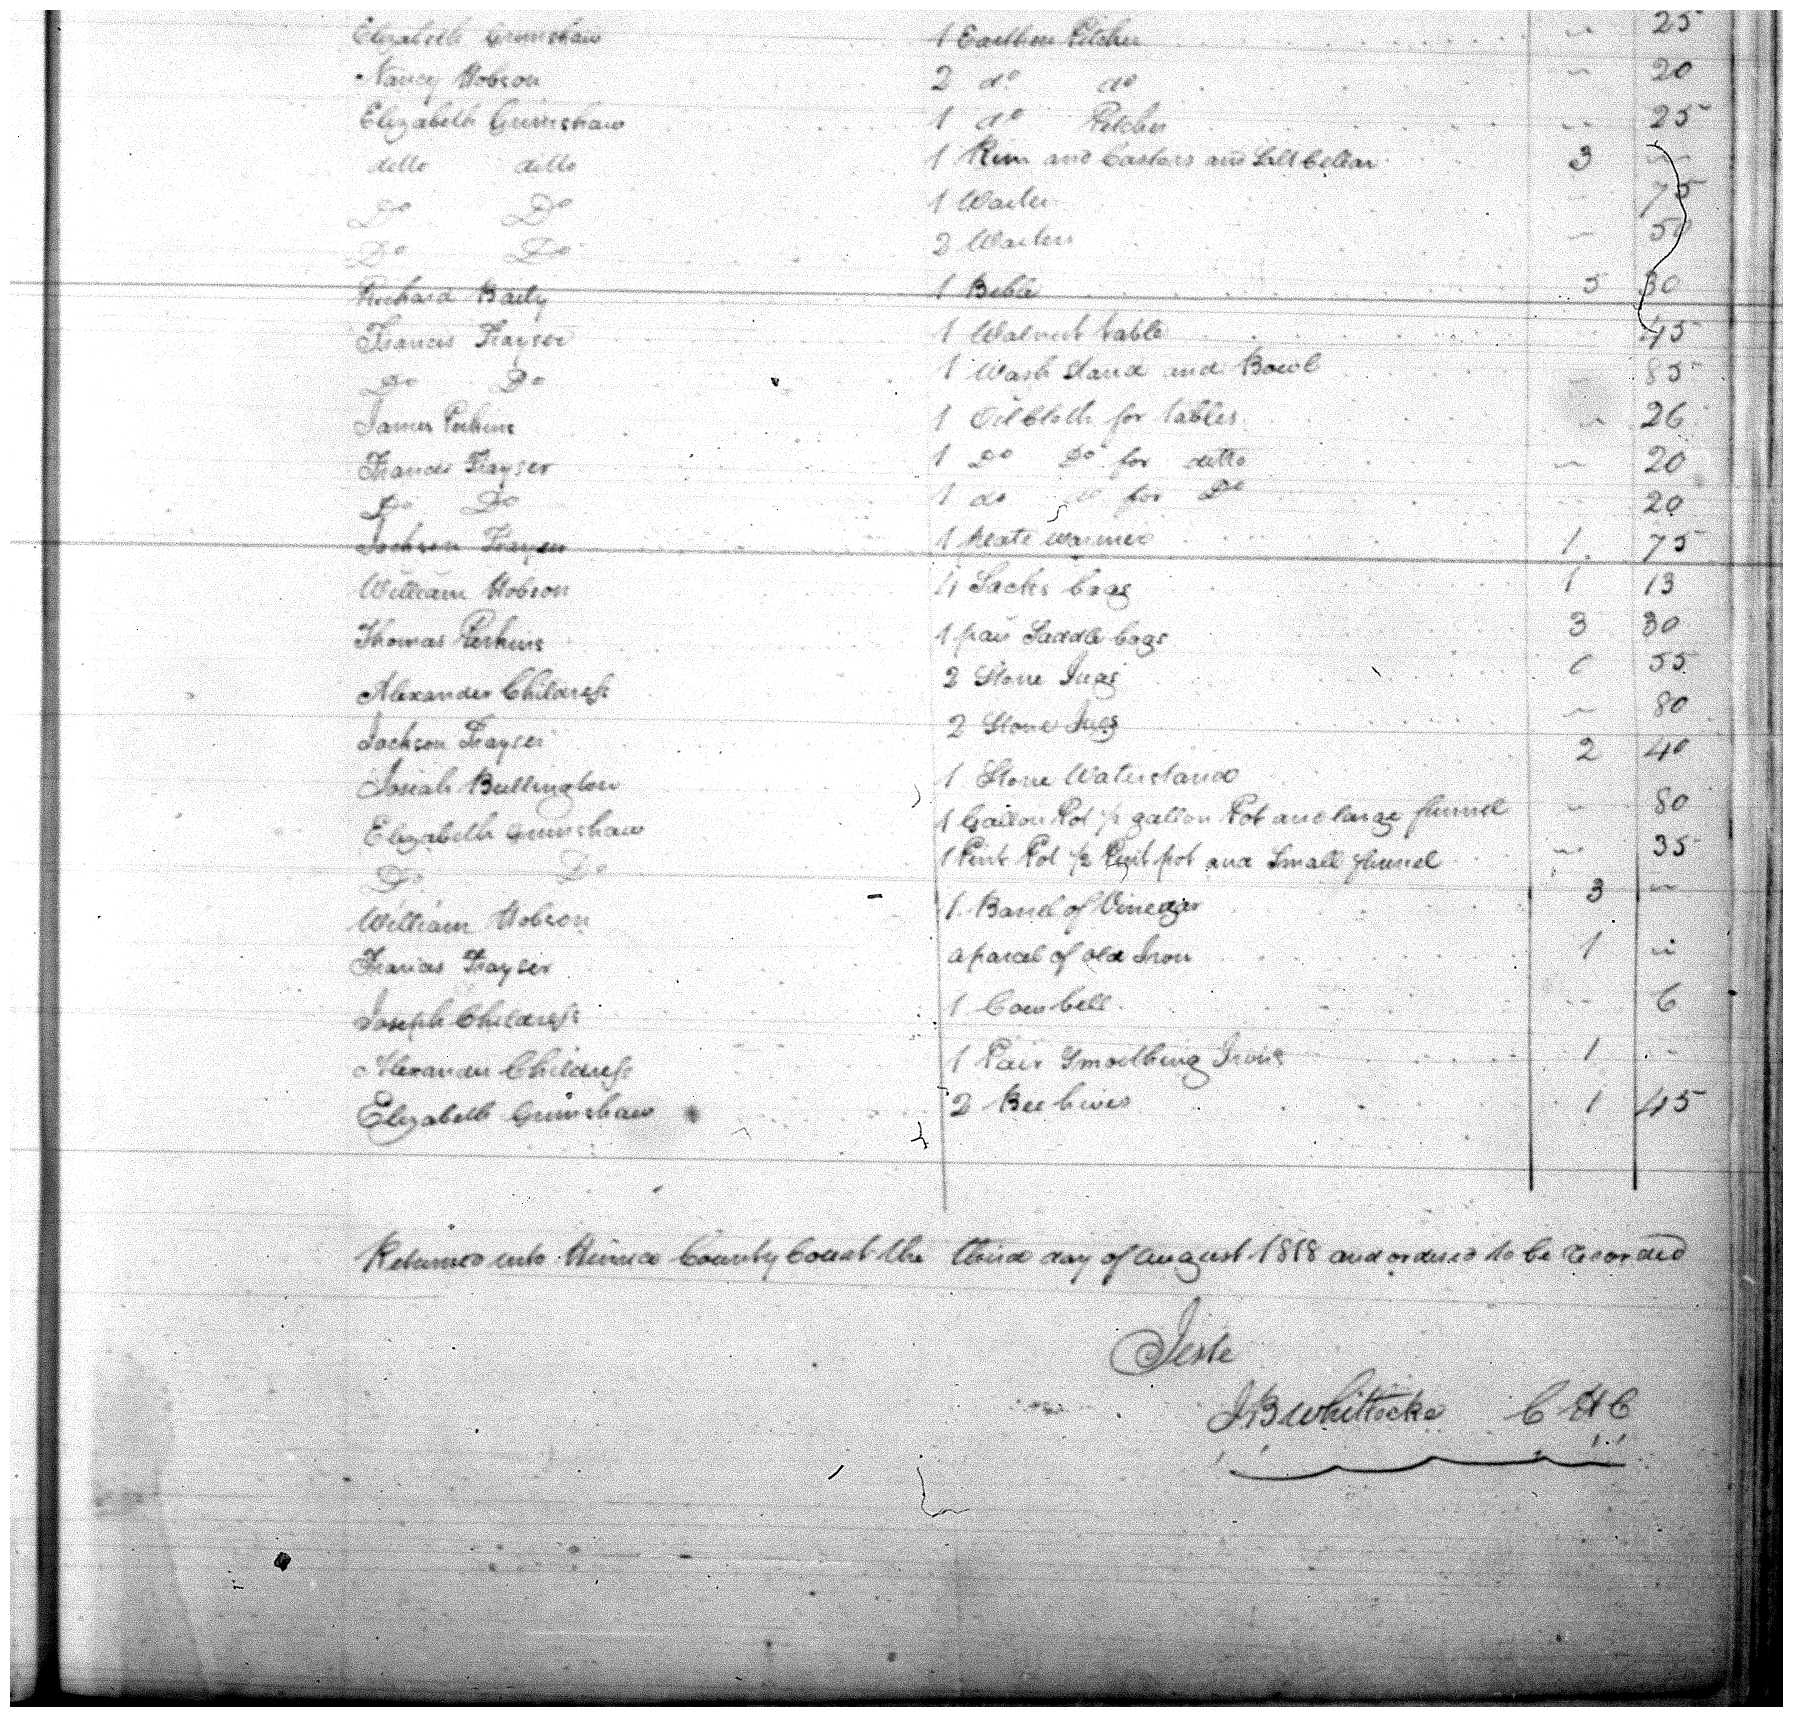 Elizabeth Grinshaw 1 Earthen Pitcher " 25
Nancy Hobson 2 do do " 20
Elizabeth Grinshaw 1 do Pitcher " 25
ditto ditto 1 Rim and Castors and Salt Cellar 3 "
Do Do 1 Waiter " 75
Do Do 2 Waiters " 50
Richard Baily 1 Bible 5 30
Francis Frayser 1 Walnut table " 45
Do Do 1 Wash Stand and Bowl " 85
James Perkins 1 Oil Cloth for tables " 26
Francis Frayser 1 Do Do for ditto " 20
Do Do 1 do do for Do " 20
Jackson Frayser 1 plate warmer 1 75
William Hobson 4 Sacks bags 1 13
Thomas Perkins 1 pair Saddle bags 3 30
Alexander Childress 2 Stone Jugs 55
Jackson Frayser 2 Stone Jugs " 80
Josiah Bullington 1 Stone Waterstand 2 40
Elizabeth Grinshaw 1 Gallon Pot ½ gallon Pot and large funnel " 80
Do Do 1 Pint Pot ½ Pint pot and Small funnel " 35
William Hobson 1 Barrel of Vinegar 3 "
Francis Frayser a parcel of old Iron 1 "
Joseph Childress 1 Cow bell " 6
Alexander Childress 1 Pair Smoothing Irons 1 "
Elizabeth Grinshaw 2 Bee hives 1 45
Returned into Henrico County Court the third day of August 1818 and ordered to be recorded
Teste
J B Whitlocke C H C